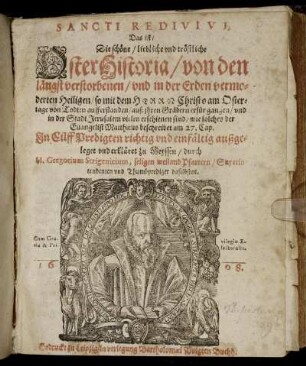 SANCTI REDIVIVI,
Das ist/
Die schöne/ liebliche vnd tröstliche
Oster Historia/ von den
längst verstorbenen/ vnd in der Erden vermo-
derten Heiligen/ so mit dem HERRN Christo am Oster-
tage von Todten aufferstanden/ auß jhren Gräbern
und in der Stadt Jerusalem vielen erschienen sind/ wie solches der
Euangelist Matthæus beschreibet am 27. Cap.
In Eilff Predigten richtig vnd einfältig außge-
leget vnd erkläret zu Meyssen/ durch
M. Gregorium Strigenitium, seligen weiland Pfarrern/ Superin-
tendenten vnd Thumbprediger daselbsten.
Cum Gra-
tia & Pri-
uilegio E-
lectorali.
1608.
Gedruckt zu Leipzig/ in verlegung Bartholomæi Voigten Buchh.